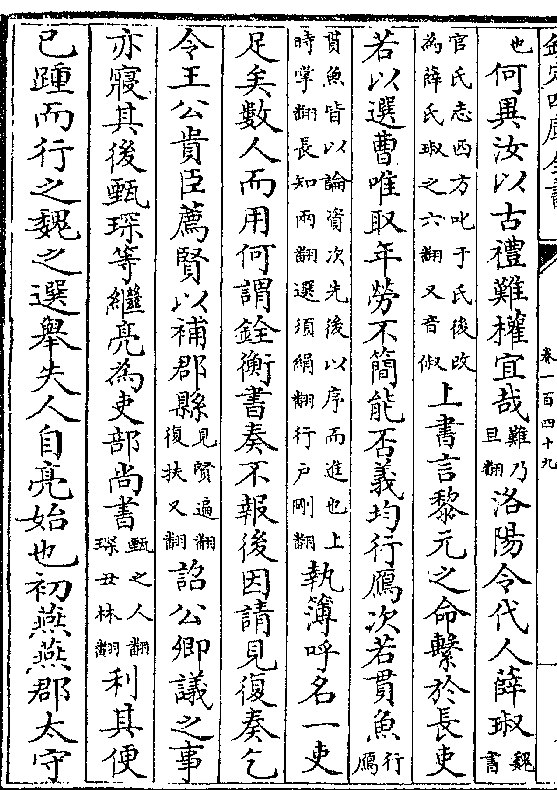 欽定四庫全書
卷一百四十九
也何異汝以古禮難權宜哉難乃旦翻洛陽令代人薛琡魏書
官氏志西方叱于氏後改為薛氏琡之六翻又音俶上書言黎元之命繫於長吏
若以選曹唯取年勞不簡能否義均行鴈次若貫魚行鴈
貫魚皆以論資次先後以序而進也上時掌翻長知兩翻選須絹翻行戶剛翻執簿呼名一吏
足矣數人而用何謂銓衡書奏不報後因請見復奏乞
令王公貴臣薦賢以補郡縣見賢遍翻復扶又翻詔公卿議之事
亦寢其後甄琛等繼亮為吏部尚書甄之人翻琛丑林翻利其便
已踵而行之魏之選舉失人自亮始也初燕燕郡太守